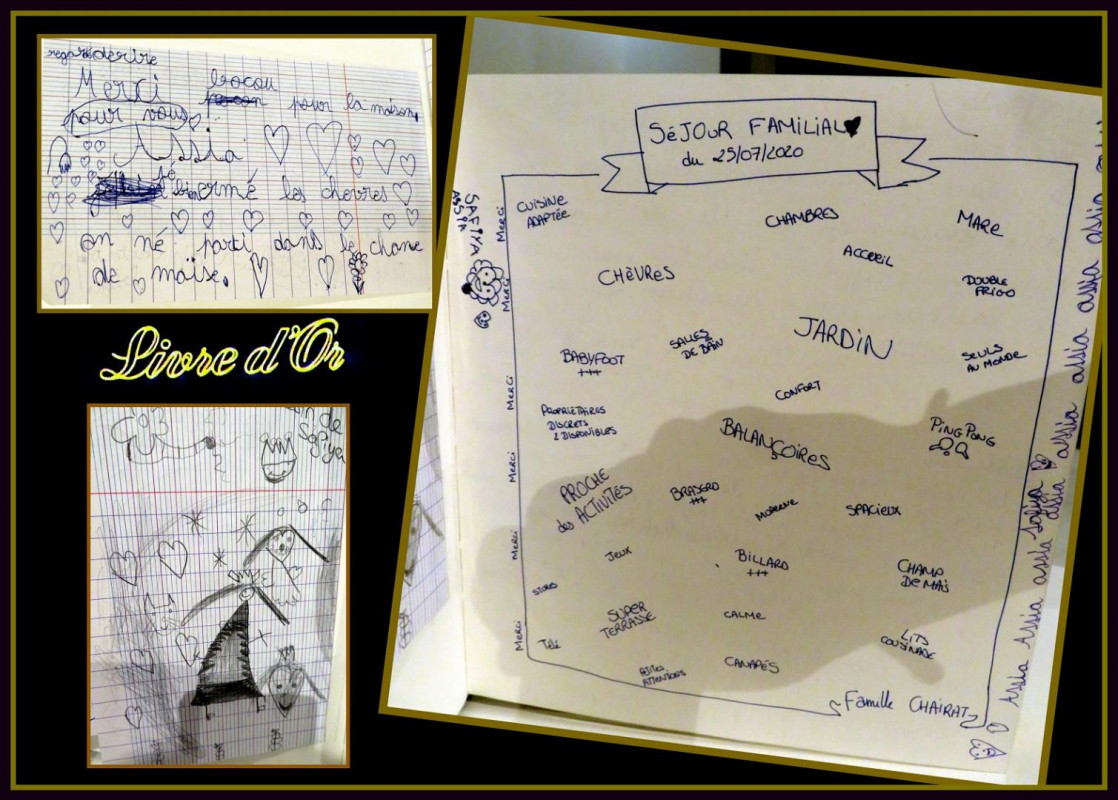 regardérire
Merci bocou
pour la maison,
pour vous!
Assia
biermé les chevres
on né parti dans le chane
de maïse.
Livre d'Or
SéJOUR FAMILIAL
du 25/07/2020
CUISINE
ADAPTÉE
CHAMBRES
MARE
ACCUEIL
CHÈVRES
DOUBLE
FRIGO
JARDIN
SALLES
DE BAIN
BABYFOOT
+++
SEULS
AU MONDE
CONFORT
PROPRIÉTAIRES
DISCRETS
& DISPONIBLES
BALANÇOIRES
PING PONG
PROCHE
des ACTIVITÉS
BRASERO
+++
MODERNE
SPACIEUX
JEUX
BILLARD
+++
CHAMP
DE MAÏS
STORES
SUPER
TERRASSE
CALME
Télé
LITS
PETITES
ATTENTIONS
CANAPÉS
Famille CHAIRAT
Merci
Merci
Merci
Merci
Merci
Merci
SAFIYA
ASSIA
Assia Assia assia assia assia assia assia assia
Safiya